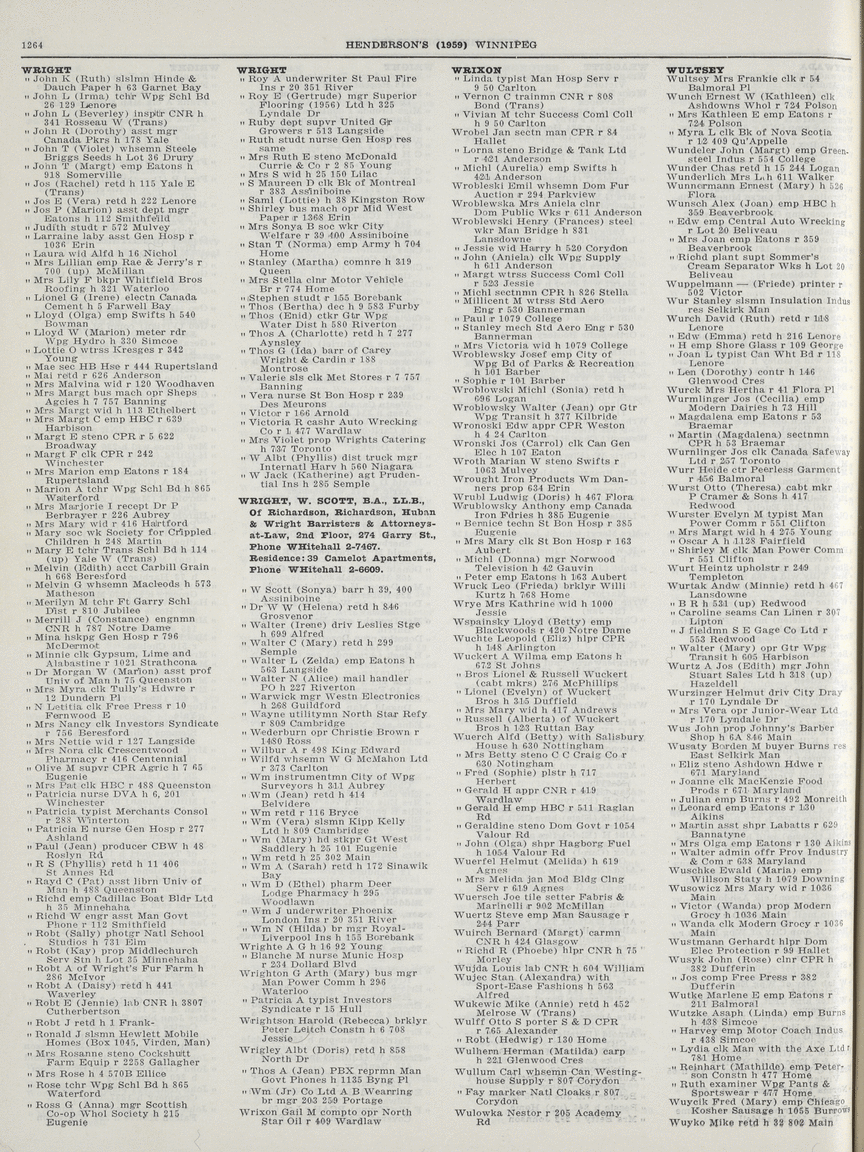 1264
HENDERSON'S (1959) WINNIPEG
WRIGHT
" John K (Ruth) slslmn Hinde &
Dauch Paper h 63 Garnet Bay
" John L (Irma) tchr Wpg Schl Bd
26 129 Lenore
" John L (Beverley) insptr CNR h
341 Rosseau W (Trans)
" John R (Dorothy) asst mgr
Canada Pkrs h 178 Yale
" John T (Violet) whsemn Steele
Briggs Seeds h Lot 36 Drury
" John T (Margt) emp Eatons h
918 Somerville
" Jos (Rachel) retd h 115 Yale E
(Trans)
" Jos E (Vera) retd h 222 Lenore
" Jos P (Marion) asst dept mgr
Eatons h 112 Smithfield
" Judith studt r 572 Mulvey
" Larraine laby asst Gen Hosp r
1036 Erin
" Laura wid Alfd h 16 Nichol
" Mrs Lillian emp Rae & Jerry's r
700 (up) McMillan
" Mrs Lily F bkpr Whitfield Bros
Roofing h 321 Waterloo
" Lionel G (Irene) electn Canada
Cement h 5 Farwell Bay
" Lloyd (Olga) emp Swifts h 540
Bowman
" Lloyd W (Marion) meter rdr
Wpg Hydro h 330 Simcoe
" Lottie O wtrss Kresges r 342
Young
" Mae sec HB Hse r 444 Rupertsland
" Mai retd r 626 Anderson
" Mrs Malvina wid r 120 Woodhaven
" Mrs Margt bus mach opr Sheps
Agcies h 7 757 Banning
" Mrs Margt wid h 113 Ethelbert
" Mrs Margt C emp HBC r 639
Harbison
" Margt E steno CPR r 5 622
Broadway
" Margt F clk CPR r 242
Winchester
" Mrs Marion emp Eatons r 184
Rupertsland
" Marion A tchr Wpg Schl Bd h 865
Waterford
" Mrs Marjorie I recept Dr P
Berbrayer r 226 Aubrey
" Mrs Mary wid r 416 Hartford
" Mary soc wk Society for Crippled
Children h 248 Martin
" Mary E tchr Trans Schl Bd h 114
(up) Yale W (Trans)
" Melvin (Edith) acct Carbill Grain
h 668 Beresford
" Melvin G whsemn Macleods h 573
Matheson
" Merilyn M tchr Ft Garry Schl
Dist r 810 Jubilee
" Merrill J (Constance) engnmn
CNR h 787 Notre Dame
" Mina hskpg Gen Hosp r 796
McDermot
" Minnie clk Gypsum, Lime and
Alabastine r 1021 Strathcona
" Dr Morgan W (Marion) asst prof
Univ of Man h 75 Queenston
" Mrs Myra clk Tully's Hdwre r
12 Dundern Pl
" N Letitia clk Free Press r 10
Fernwood E
" Mrs Nancy clk Investors Syndicate
r 756 Beresford
" Mrs Nettie wid r 127 Langside
" Mrs Nora clk Crescentwood
Pharmacy r 416 Centennial
" Olive M supvr CPR Agric h 7 65
Eugenie
" Mrs Pat clk HBC r 488 Queenston
" Patricia nurse DVA h 6, 201
Winchester
" Patricia typist Merchants Consol
r 288 Winterton
" Patricia E nurse Gen Hosp r 277
Ashland
" Paul (Jean) producer CBW h 48
Roslyn Rd
" R S (Phyllis) retd h 11 406
St Annes Rd
" Rayd C (Pat) asst librn Univ of
Man h 488 Queenston
" Richd emp Cadillac Boat Bldr Ltd
h 35 Minnehaha
" Richd W engr asst Man Govt
Phone r 112 Smithfield
" Robt (Sally) photgr Natl School
Studios h 731 Elm
" Robt (Kay) prop Middlechurch
Serv Stn h Lot 35 Minnehaha
" Robt A of Wright's Fur Farm h
286 McIvor
" Robt A (Daisy) retd h 441
Waverley
" Robt E (Jennie) lab CNR h 3807
Cuthbertson
" Robt J retd h 1 Frank-
" Ronald J slsmn Hewlett Mobile
Homes (Box 1045, Virden, Man)
" Mrs Rosanne steno Cockshutt
Farm Equip r 2258 Gallagher
" Mrs Rose h 4 570B Ellice
" Rose tchr Wpg Schl Bd h 865
Waterford
" Ross G (Anna) mgr Scottish
Co-op Whol Society h 215
Eugenie
WRIGHT
" Roy A underwriter St Paul Fire
Ins r 20 351 River
" Roy E (Gertrude) mgr Superior
Flooring (1956) Ltd h 325
Lyndale Dr
" Ruby dept supvr United Gr
Growers r 513 Langside
" Ruth studt nurse Gen Hosp res
same
" Mrs Ruth E steno McDonald
Currie & Co r 2 85 Young
" Mrs S wid h 25 150 Lilac
" S Maureen D clk Bk of Montreal
r 383 Assiniboine
" Saml (Lottie) h 38 Kingston Row
" Shirley bus mach opr Mid West
Paper r 1368 Erin
" Mrs Sonya B soc wkr City
Welfare r 39 400 Assiniboine
" Stan T (Norma) emp Army h 704
Home
" Stanley (Martha) comnre h 319
Queen
" Mrs Stella clnr Motor Vehicle
Br r 774 Home
" Stephen studt r 155 Borebank
" Thos (Bertha) dec h 9 583 Furby
" Thos (Enid) ctkr Gtr Wpg
Water Dist h 580 Riverton
" Thos A (Charlotte) retd h 7 277
Aynsley
" Thos G (Ida) barr of Carey
Wright & Cardin r 188
Montrose
" Valerie sls clk Met Stores r 7 757
Banning
" Vera nurse St Bon Hosp r 239
Des Meurons
" Victor r 166 Arnold
" Victoria R cashr Auto Wrecking
Co r 1 477 Wardlaw
" Mrs Violet prop Wrights Catering
h 737 Toronto
" W Albt (Phyllis) dist truck mgr
Internatl Harv h 560 Niagara
" W Jack (Katherine) agt Pruden-
tial Ins h 285 Semple
WRIGHT, W. SCOTT, B.A., LL.B.,
Of Richardson, Richardson, Huban
& Wright Barristers & Attorneys-
at-Law, 2nd Floor, 274 Garry St.,
Phone WHitehall 2-7467.
Residence: 39 Camelot Apartments,
Phone WHitehall 2-6609.
" W Scott (Sonya) barr h 39, 400
Assiniboine
" Dr W W (Helena) retd h 846
Grosvenor
" Walter (Irene) driv Leslies Stge
h 699 Alfred
" Walter C (Mary) retd h 299
Semple
" Walter L (Zelda) emp Eatons h
563 Langside
" Walter N (Alice) mail handler
PO h 227 Riverton
" Warwick mgr Westn Electronics
h 268 Guildford
" Wayne utilitymn North Star Refy
r 809 Cambridge
" Wederburn opr Christie Brown r
1480 Ross
" Wilbur A r 498 King Edward
" Wilfd whsemn W G McMahon Ltd
r 373 Carlton
" Wm instrumentmn City of Wpg
Surveyors h 311 Aubrey
" Wm (Jean) retd h 414
Belvidere
" Wm retd r 116 Bryce
" Wm (Vera) slsmn Kipp Kelly
Ltd h 809 Cambridge
" Wm (Mary) hd stkpr Gt West
Saddlery h 25 101 Eugenie
" Wm retd h 25 302 Main
" Wm A (Sarah) retd h 172 Sinawik
Bay
" Wm D (Ethel) pharm Deer
Lodge Pharmacy h 295
Woodlawn
" Wm J underwriter Phoenix
London Ins r 20 351 River
" Wm N (Hilda) br mgr Royal-
Liverpool Ins h 155 Borebank
Wrighte A G h 16 92 Young
" Blanche M nurse Munic Hosp
r 234 Dollard Blvd
Wrighton G Arth (Mary) bus mgr
Man Power Comm h 296
Waterloo
" Patricia A typist Investors
Syndicate r 15 Hull
Wrightson Harold (Rebecca) brklyr
Peter Leitch Constn h 6 708
Jessie
Wrigley Albt (Doris) retd h 858
North Dr
" Thos A (Jean) PBX reprmn Man
Govt Phones h 1135 Byng Pl
" Wm (Jr) Co Ltd A B Wearring
br mgr 203 259 Portage
Wrixon Gail M compto opr North
Star Oil r 409 Wardlaw
WRIXON
" Linda typist Man Hosp Serv r
9 50 Carlton
" Vernon C trainmn CNR r 808
Bond (Trans)
" Vivian M tchr Success Coml Coll
h 9 50 Carlton
Wrobel Jan sectn man CPR r 84
Hallet
" Lorna steno Bridge & Tank Ltd
r 421 Anderson
" Michl (Aurelia) emp Swifts h
421 Anderson
Wrobleski Emil whsemn Dom Fur
Auction r 294 Parkview
Wroblewska Mrs Aniela clnr
Dom Public Wks r 611 Anderson
Wroblewski Henry (Frances) steel
wkr Man Bridge h 831
Lansdowne
" Jessie wid Harry h 520 Corydon
" John (Aniela) clk Wpg Supply
h 611 Anderson
" Margt wtrss Success Coml Coll
r 523 Jessie
" Michl sectnmn CPR h 826 Stella
" Millicent M wtrss Std Aero
Eng r 530 Bannerman
" Paul r 1079 College
" Stanley mech Std Aero Eng r 530
Bannerman
" Mrs Victoria wid h 1079 College
Wroblewsky Josef emp City of
Wpg Bd of Parks & Recreation
h 101 Barber
" Sophie r 101 Barber
Wroblowski Michl (Sonia) retd h
696 Logan
Wroblowsky Walter (Jean) opr Gtr
Wpg Transit h 377 Kilbride
Wronoski Edw appr CPR Weston
h 4 24 Carlton
Wronski Jos (Carrol) clk Can Gen
Elec h 107 Eaton
Wroth Marian W steno Swifts r
1063 Mulvey
Wrought Iron Products Wm Dan-
ners prop 634 Erin
Wrubl Ludwig (Doris) h 467 Flora
Wrublowsky Anthony emp Canada
Iron Fdries h 385 Eugenie
" Bernice techn St Bon Hosp r 385
Eugenie
" Mrs Mary clk St Bon Hosp r 163
Aubert
" Michl (Donna) mgr Norwood
Television h 42 Gauvin
" Peter emp Eatons h 163 Aubert
Wruck Leo (Frieda) brklyr Willi
Kurtz h 768 Home
Wrye Mrs Kathrine wid h 1000
Jessie
Wspainsky Lloyd (Betty) emp
Blackwoods r 420 Notre Dame
Wuchte Leopold (Eliz) hlpr CPR
h 148 Arlington
Wuckert A Wilma emp Eatons h
672 St Johns
" Bros Lionel & Russell Wuckert
(cabt mkrs) 276 McPhillips
" Lionel (Evelyn) of Wuckert
Bros h 315 Duffield
" Mrs Mary wid h 417 Andrews
" Russell (Alberta) of Wuckert
Bros h 123 Ruttan Bay
Wuerch Alfd (Betty) with Salisbury
House h 630 Nottingham
" Mrs Betty steno C C Craig Co r
630 Nottingham
" Fred (Sophie) plstr h 717
Herbert
" Gerald H appr CNR r 419
Wardlaw
" Gerald H emp HBC r 511 Raglan
Rd
" Geraldine steno Dom Govt r 1054
Valour Rd
" John (Olga) shpr Hagborg Fuel
h 1054 Valour Rd
Wuerfel Helmut (Melida) h 619
Agnes
" Mrs Melida jan Mod Bldg Clng
Serv r 619 Agnes
Wuersch Joe tile setter Fabris &
Marinelli r 902 McMillan
Wuertz Steve emp Man Sausage r
244 Parr
Wuirch Bernard (Margt) carmn
CNR h 424 Glasgow
" Richd R (Phoebe) hlpr CNR h 75
Morley
Wujda Louis lab CNR h 604 William
Wujec Stan (Alexandra) with
Sport-Ease Fashions h 563
Alfred
Wukewic Mike (Annie) retd h 452
Melrose W (Trans)
Wulff Otto S porter S & D CPR
r 765 Alexander
" Robt (Hedwig) r 130 Home
Wulhern Herman (Matilda) carp
h 221 Glenwood Cres
Wullum Carl whsemn Can Westing-
house Supply r 807 Corydon
" Fay marker Natl Cloaks r 807
Corydon
Wulowka Nestor r 205 Academy
Rd
WULTSEY
Wultsey Mrs Frankie clk r 54
Balmoral Pl
Wunch Ernest W (Kathleen) clk
Ashdowns Whol r 724 Polson
" Mrs Kathleen E emp Eatons r
724 Polson
" Myra L clk Bk of Nova Scotia
r 12 409 Qu'Appelle
Wundeler John (Margt) emp Green-
steel Indus r 554 College
Wunder Chas retd h 15 244 Logan
Wunderlich Mrs L h 611 Walker
Wunnermann Ernest (Mary) h 526
Flora
Wunsch Alex (Joan) emp HBC h
359 Beaverbrook
" Edw emp Central Auto Wrecking
r Lot 20 Beliveau
" Mrs Joan emp Eatons r 359
Beaverbrook
" Richd plant supt Sommer's
Cream Separator Wks h Lot 20
Beliveau
Wuppelmann — (Friede) printer r
502 Victor
Wur Stanley slsmn Insulation Indus
res Selkirk Man
Wurch David (Ruth) retd r 118
Lenore
" Edw (Emma) retd h 216 Lenore
" H emp Shore Glass r 109 George
" Joan L typist Can Wht Bd r 118
Lenore
" Len (Dorothy) contr h 146
Glenwood Cres
Wurck Mrs Hertha r 41 Flora Pl
Wurmlinger Jos (Cecilia) emp
Modern Dairies h 73 Hill
" Magdalena emp Eatons r 53
Braemar
" Martin (Magdalena) sectnmn
CPR h 53 Braemar
Wurnlinger Jos clk Canada Safeway
Ltd r 257 Toronto
Wurr Heide ctr Peerless Garment
r 456 Balmoral
Wurst Otto (Theresa) cabt mkr
P Cramer & Sons h 417
Redwood
Wurster Evelyn M typist Man
Power Comm r 551 Clifton
" Mrs Margt wid h 4 275 Young
" Oscar A h 1128 Fairfield
" Shirley M clk Man Power Comm
r 551 Clifton
Wurt Heintz upholstr r 249
Templeton
Wurtak Andw (Minnie) retd h 467
Lansdowne
" B R h 531 (up) Redwood
" Caroline seams Can Linen r 307
Lipton
" J fieldmn S E Gage Co Ltd r
553 Redwood
" Walter (Mary) opr Gtr Wpg
Transit h 605 Harbison
Wurtz A Jos (Edith) mgr John
Stuart Sales Ltd h 318 (up)
Hazeldell
Wurzinger Helmut driv City Dray
r 170 Lyndale Dr
" Mrs Vera opr Junior-Wear Ltd
r 170 Lyndale Dr
Wus John prop Johnny's Barber
Shop h 6A 846 Main
Wusaty Borden M buyer Burns res
East Selkirk Man
" Eliz steno Ashdown Hdwe r
671 Maryland
" Joanne clk MacKenzie Food
Prods r 671 Maryland
" Julian emp Burns r 492 Monreith
" Leonard emp Eatons r 130
Aikins
" Martin asst shpr Labatts r 629
Bannatyne
" Mrs Olga emp Eatons r 130 Aikins
" Walter admin offr Prov Industry
& Com r 638 Maryland
Wuschke Ewald (Maria) emp
Willson Staty h 1079 Downing
Wusowicz Mrs Mary wid r 1036
Main
" Victor (Wanda) prop Modern
Grocy h 1036 Main
" Wanda clk Modern Grocy r 1036
Main
Wustmann Gerhardt hlpr Dom
Elec Protection r 99 Hallet
Wusyk John (Rose) clnr CPR h
382 Dufferin
" Jos comp Free Press r 382
Dufferin
Wutke Marlene E emp Eatons r
211 Balmoral
Wutzke Asaph (Linda) emp Burns
h 438 Simcoe
" Harvey emp Motor Coach Indus
r 438 Simcoe
" Lydia clk Man with the Axe Ltd r
781 Home
" Reinhart (Mathilde) emp Peter-
son Constn h 477 Home
" Ruth examiner Wpg Pants &
Sportswear r 477 Home
Wuycik Fred (Mary) emp Chicago
Kosher Sausage h 1055 Burrows
Wuyko Mike retd h 32 802 Main